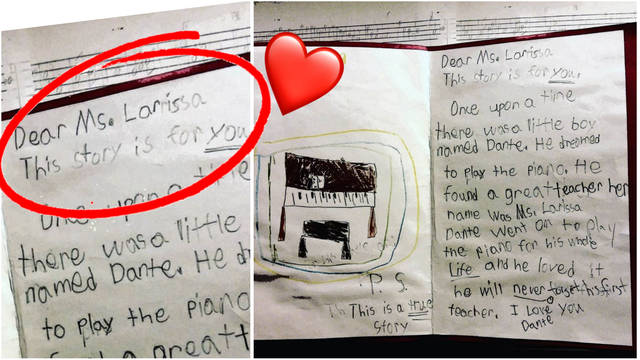 Dear Ms. Larissa
This story is for you
Once upon a time
there was a little
named Dante. He
to play the piano
found a great
P.S.
This is a true
story
Dear Ms. Larissa
This story is for you.
Once upon a time
there was a little boy
named Dante. He dreamed
to play the piano. He
found a great teacher her
name was Ms. Larissa
Dante went on to play
the piano for his whole
life and he loved it
he will never forget his first
teacher. I Love you
Dante